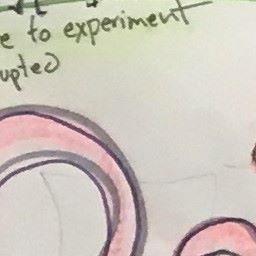 e to experiment
upted